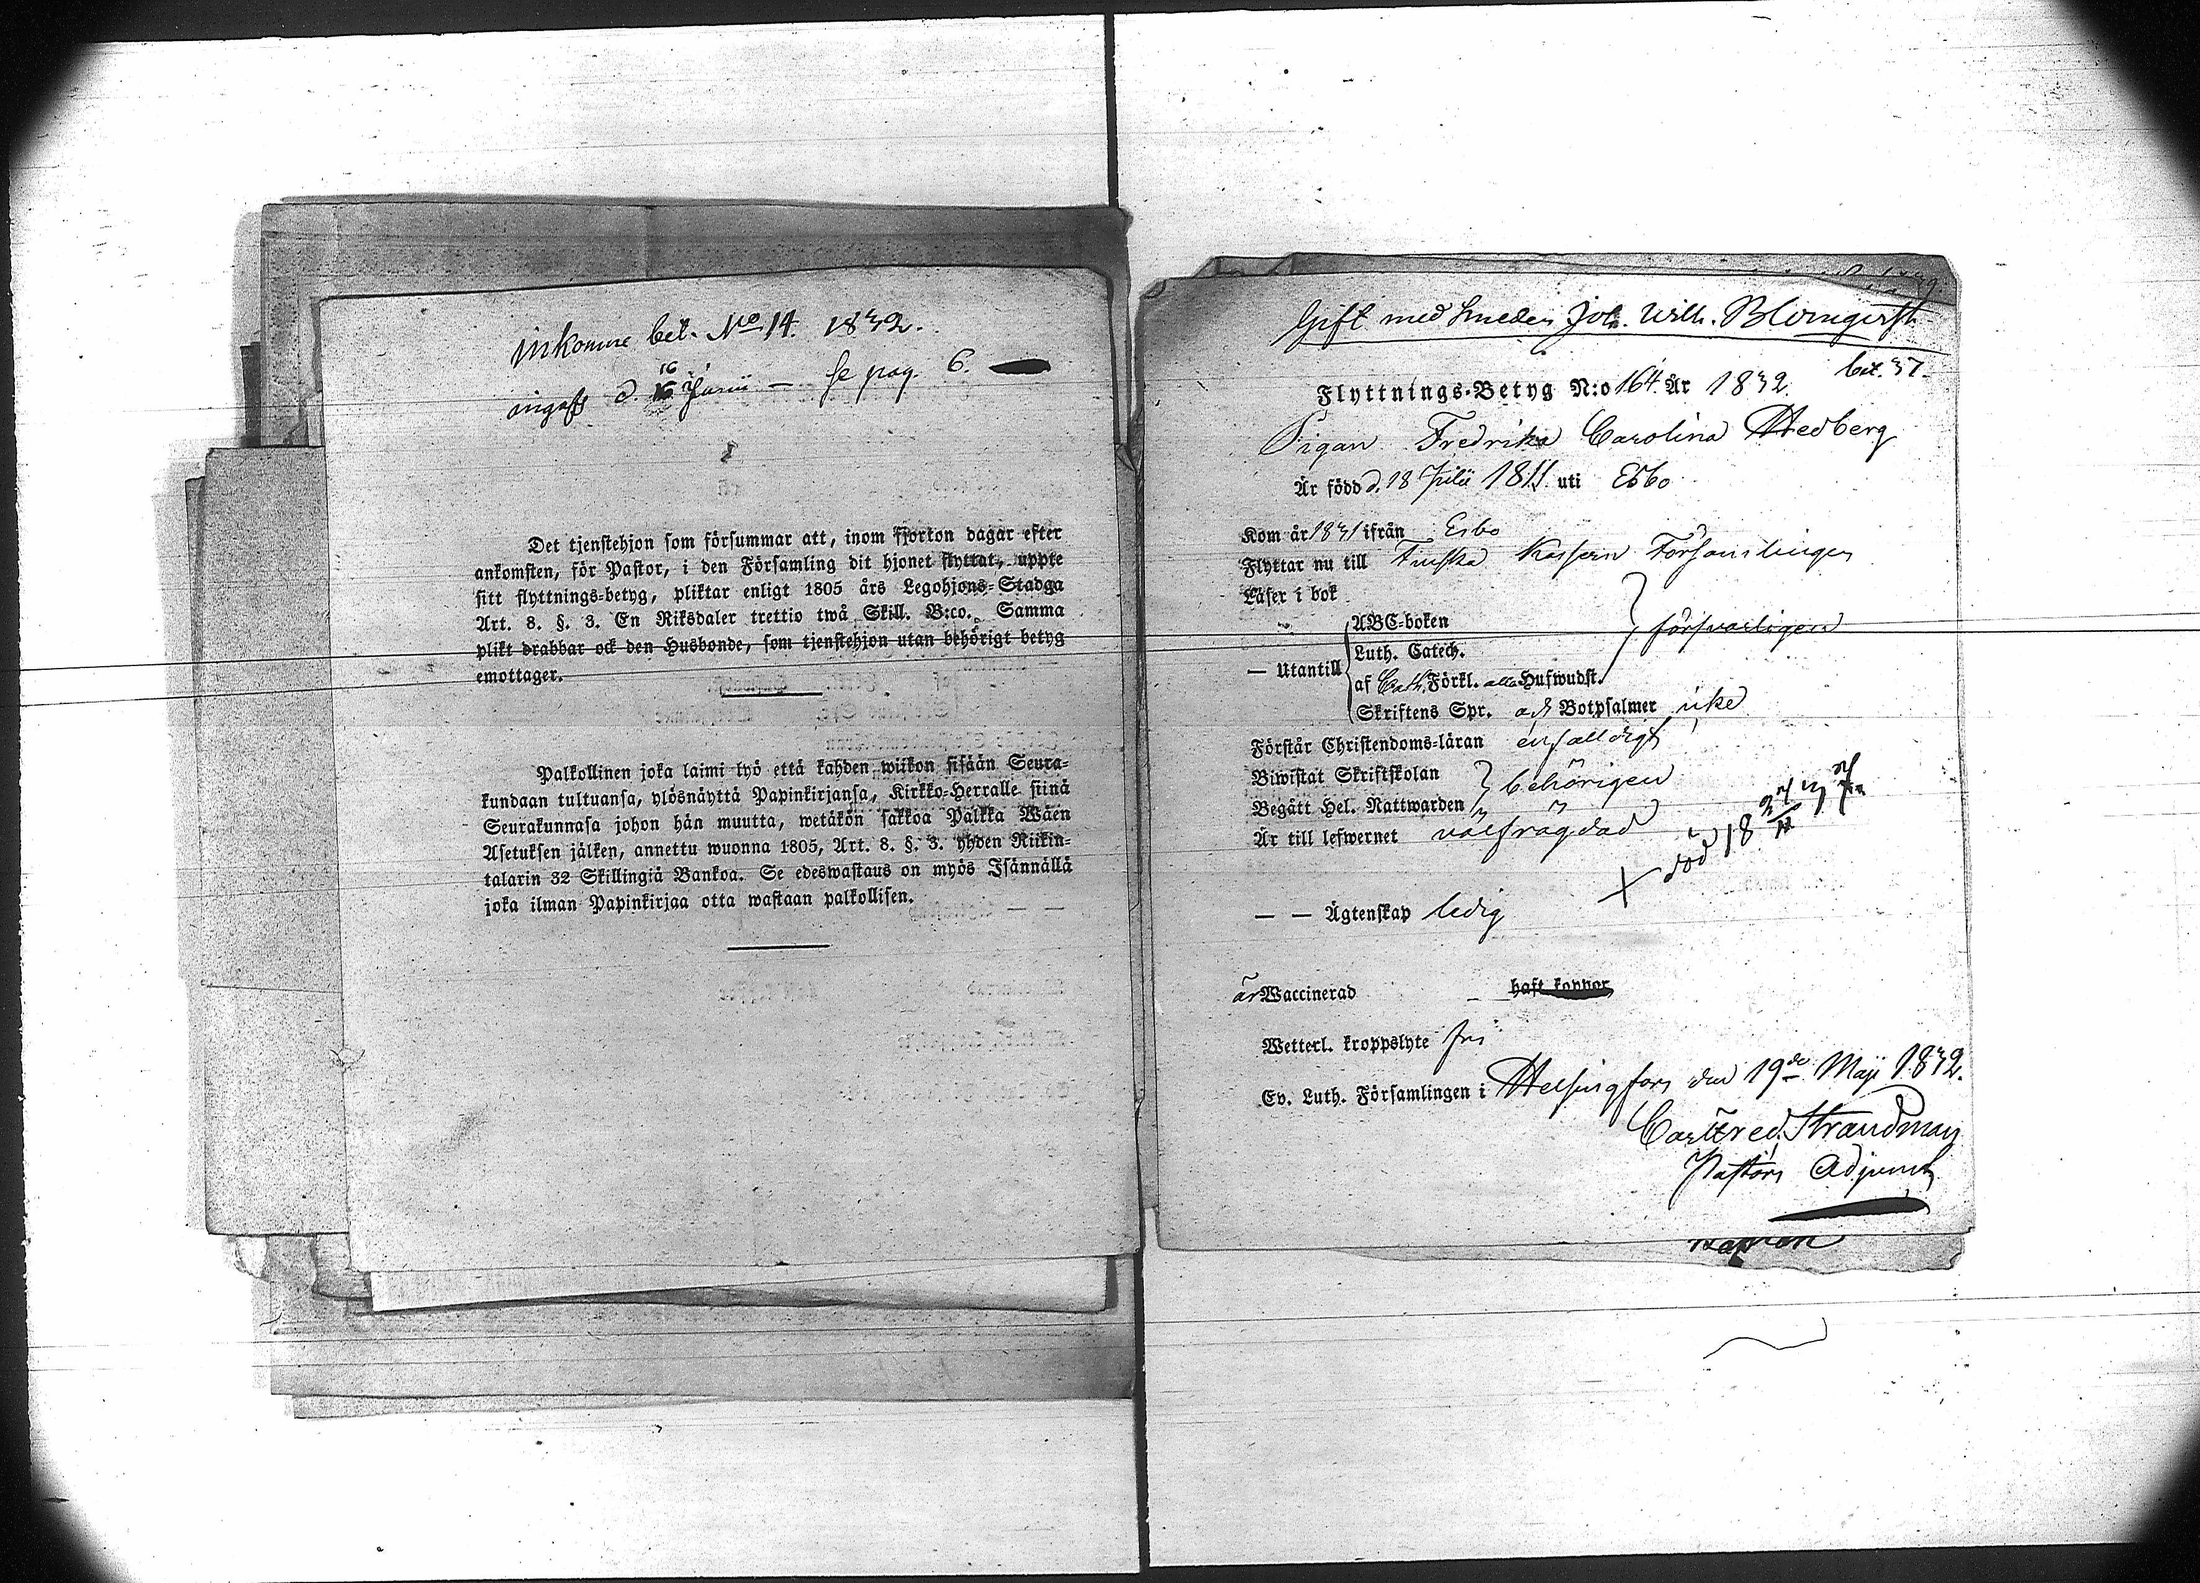 inkomne bet. No 14. 1832.
16
d. 16 Junii — se pag. 6.
Det tjenstehjon som försummar att, inom fjorton dagar efter
ankomsten, för Pastor, i den Församling dit hjonet flyttat, uppte
sitt flyttnings-betyg, pliktar enligt 1805 års Legohjons-Stadga
Art. 8. §. 3. En Riksdaler trettio twå Skill. B:co. Samma
plikt drabbar ock den Husbonde, som tjenstehjon utan behörigt betyg
emottager.
Palkollinen joka laimi lyö että kahden wiikon sisään Seura-
kundaan tultuansa, ylösnäyttä Papinkirjansa, Kirkko-Herralle siinä
Seurakunnasa johon hän muutta, wetäkön sakkoa Palkka Wäen
Asetuksen jälken, annettu wuonna 1805, Art. 8. §. 3. yhden Riikin-
talarin 32 Skillingiä Bankoa. Se edeswastaus on myös Isännällä
joka ilman Papinkirjaa otta wastaan palkollisen.
Gift med Smeden Joh. Wilh. Blomqvist
bet. 37.
Flyttnings-Betyg N:o 164. År 1832.
Pigan Fredrika Carolina Hedberg
Är född d. 18 Julii 1811. uti Esbo
Kom år 1831 ifrån Esbo
Flyttar nu till Finska Kasern Församlingen
Läser i bok
ABC-boken
Luth. Catech. försvarligen
— Utantill
af Cath. Förkl. alla Hufwudst.
Skriftens Spr. och Botpsalmer icke
Förstår Christendoms-läran enfalldigt
Biwistat Skriftskolan
behörigen
Begått Hel. Nattwarden
Är till lefwernet välfrägdad
+ död 18
— — Ägtenskap ledig
är Waccinerad — haft koppor
Wetterl. kroppslyte fri
Ev. Luth. Församlingen i Helsingfors den 19de Maji 1832.
Carl Fred. Strandman
Pastors Adjunct
Kaplan